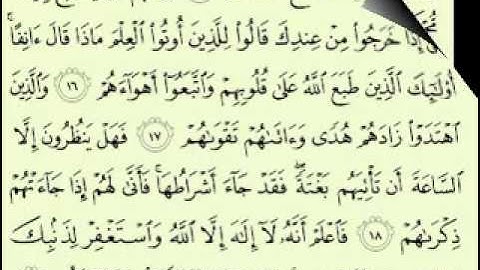 إِذَا خَرَجُوا۟ مِنْ عِندِكَ قَالُوا۟ لِلَّذِينَ أُوتُوا۟ ٱلْعِلْمَ مَاذَا قَالَ ءَانِفًا ۚ
أُو۟لَـٰٓئِكَ ٱلَّذِينَ طَبَعَ ٱللَّهُ عَلَىٰ قُلُوبِهِمْ وَٱتَّبَعُوٓا۟ أَهْوَآءَهُمْ ١٦ وَٱلَّذِينَ
ٱهْتَدَوْا۟ زَادَهُمْ هُدًى وَءَاتَىٰهُمْ تَقْوَىٰهُمْ ١٧ فَهَلْ يَنظُرُونَ إِلَّا
ٱلسَّاعَةَ أَن تَأْتِيَهُم بَغْتَةً ۖ فَقَدْ جَآءَ أَشْرَاطُهَا ۚ فَأَنَّىٰ لَهُمْ إِذَا جَآءَتْهُمْ
ذِكْرَىٰهُمْ ١٨ فَٱعْلَمْ أَنَّهُۥ لَآ إِلَـٰهَ إِلَّا ٱللَّهُ وَٱسْتَغْفِرْ لِذَنۢبِكَ